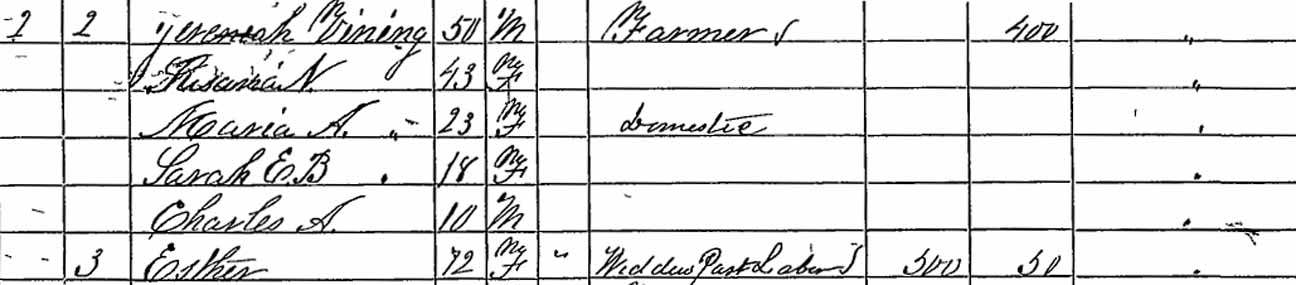 2 2 Jeremiah Vining 50 M Farmer 400 "
N. 43 F "
Maria A. " 23 F Domestic "
Sarah E. B 18 F "
Charles A. 10 M "
3 Esther 72 F " Widdow Past Labor 500 50 "